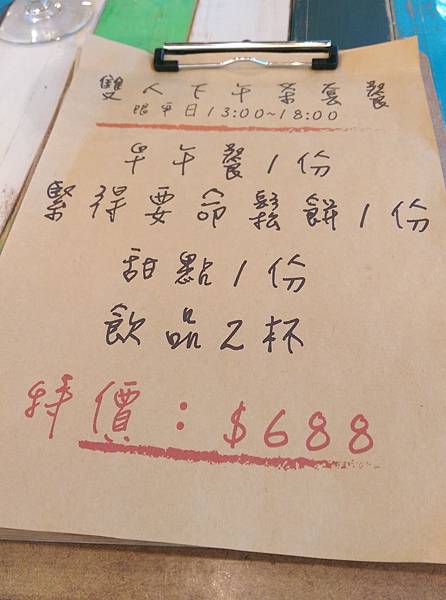 雙人下午茶套餐
限平日13:00~18:00
早午餐1份
緊得要命鬆餅1份
甜點1份
飲品2杯
特價：$688